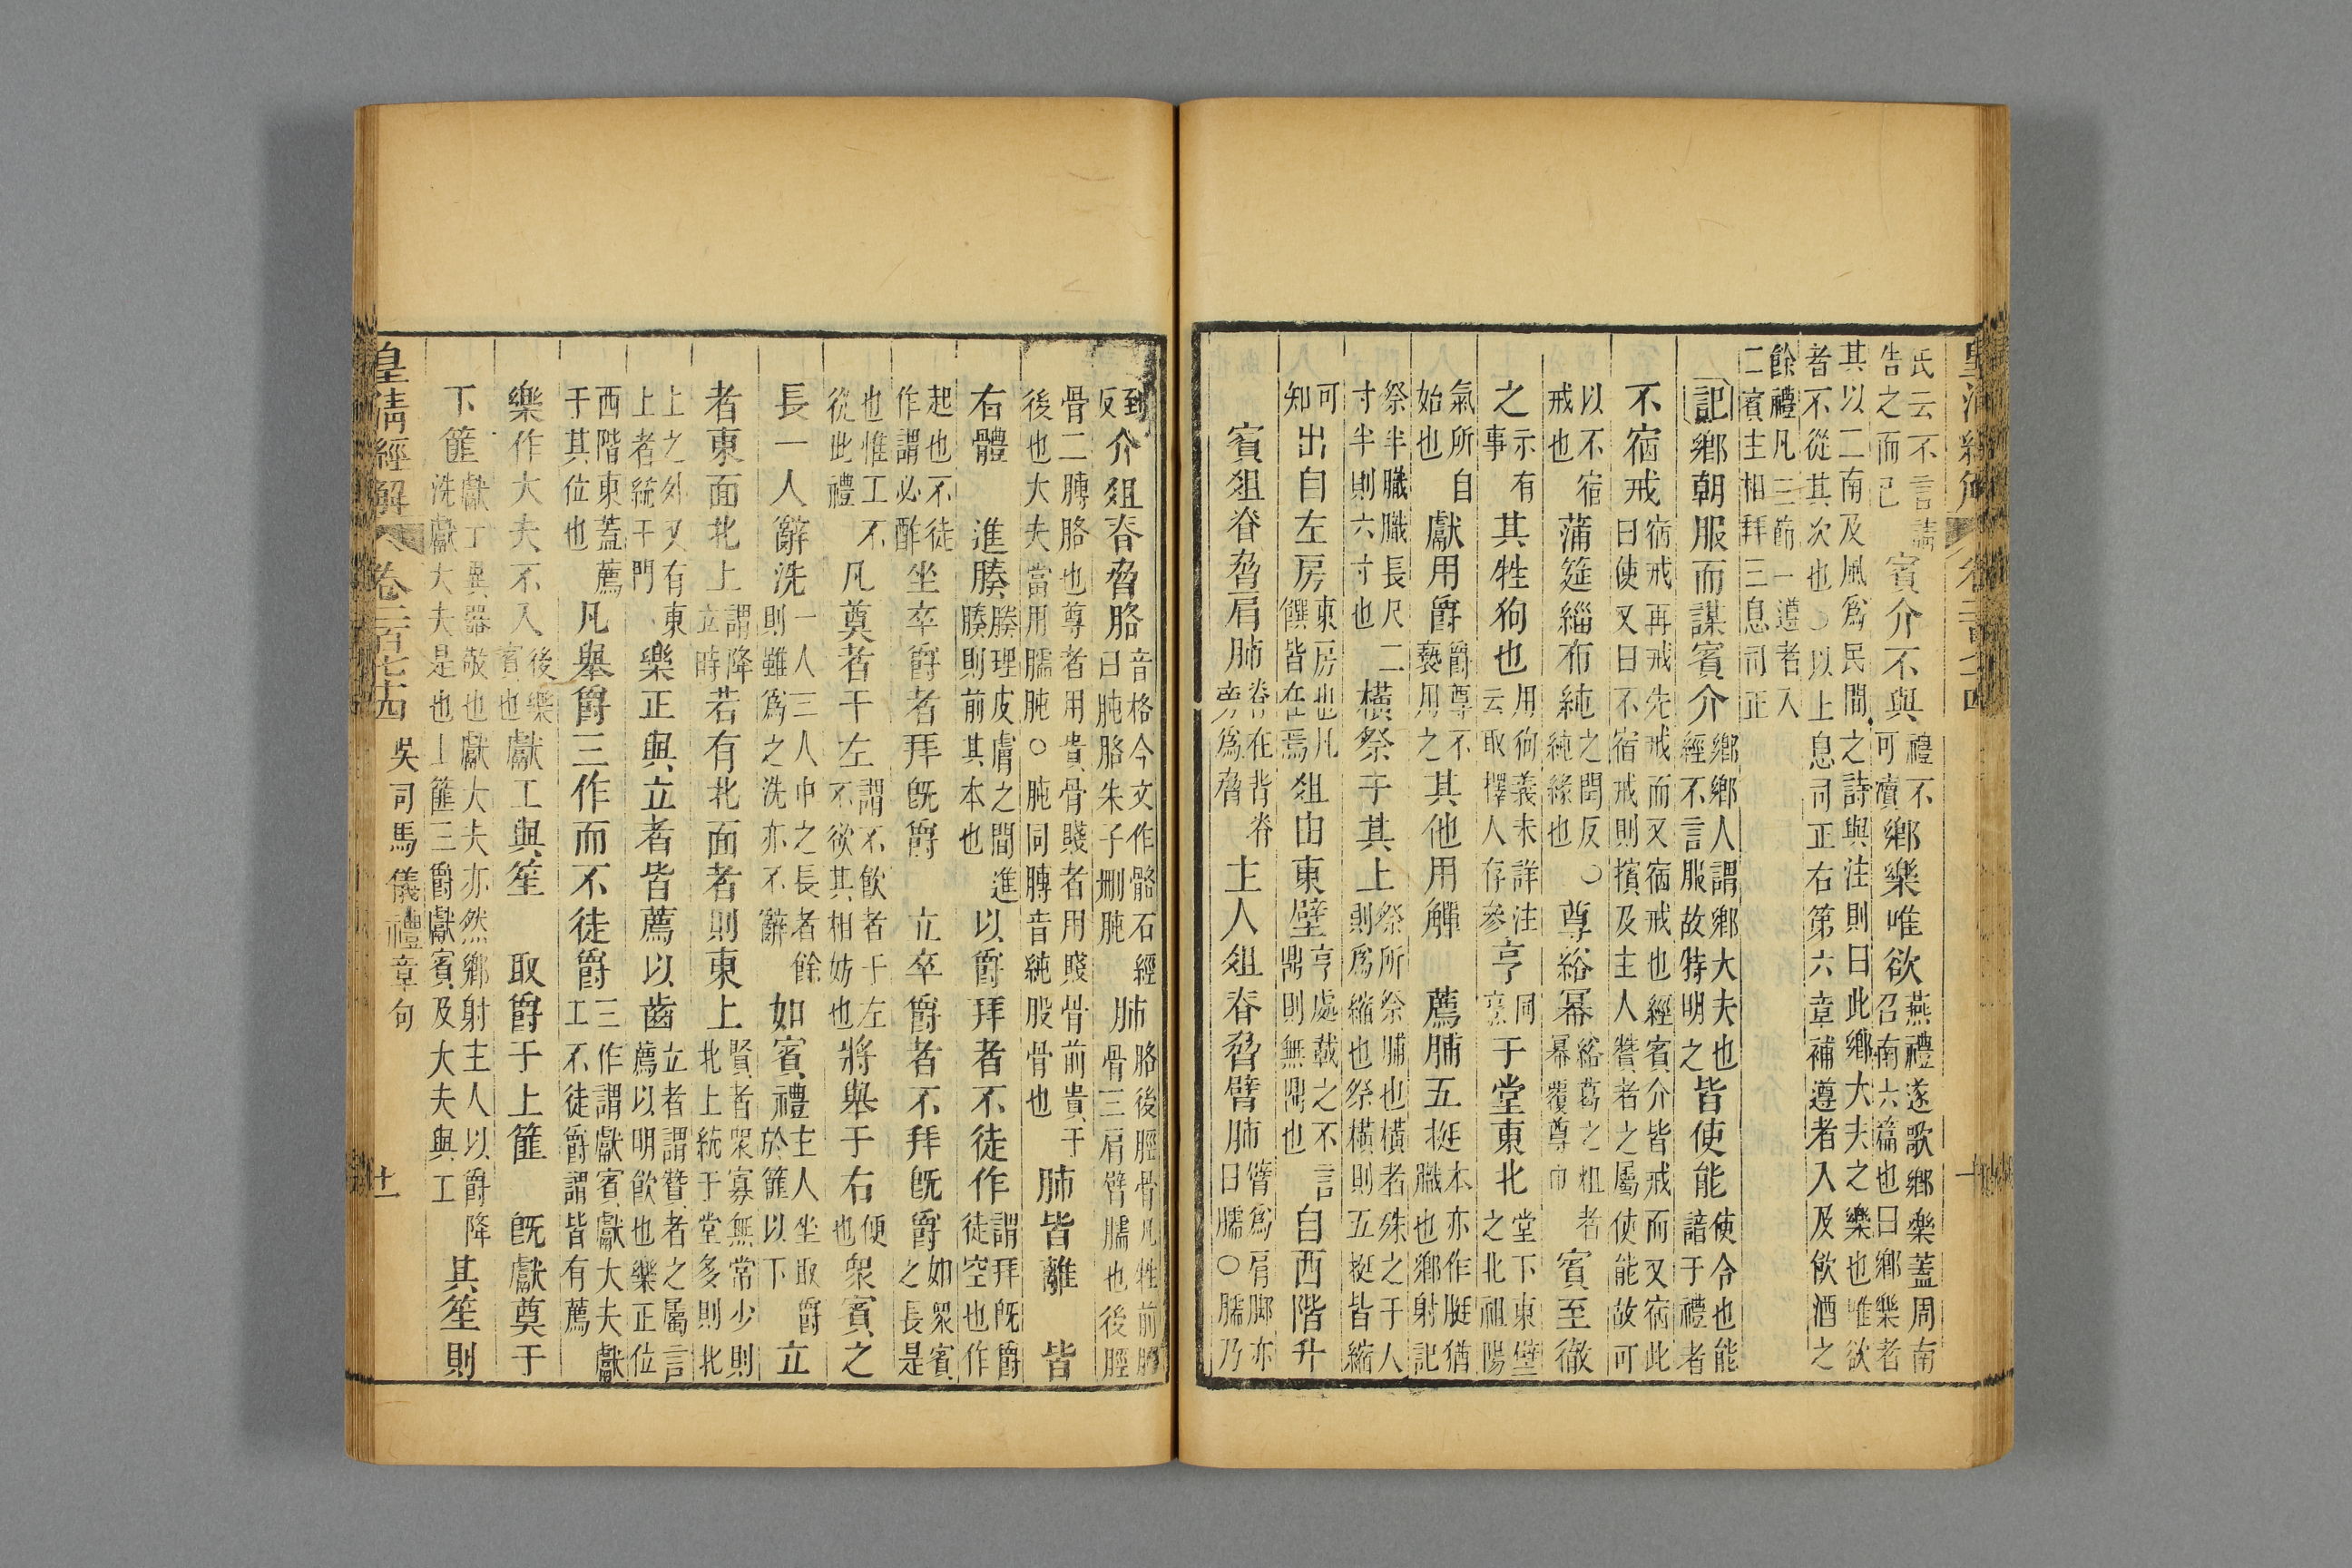 皇清經解 卷二百七十四 十
氏云不言請告之而已賓介不與禮不可瀆鄉樂唯欲燕禮遂歌鄉樂蓋周南召南六篇也曰鄉樂者
其以二南及風爲民間之詩與注則曰此鄉大夫之樂也唯欲者不從其次也○以上息司正右第六章補遵者入及飲酒之
餘禮凡三節一遵者入二賓主相拜三息司正
記鄉朝服而謀賓介鄉鄉人謂鄉大夫也經不言服故特明之皆使能使令也能諳于禮者
不宿戒宿戒再戒先戒而又宿戒也經賓介皆戒而又宿此曰使又曰不宿戒則擯及主人贊者之屬使能故可
以不宿戒也蒲筵緇布純之閏反○純緣也尊綌冪綌葛之粗者冪覆尊巾賓至徹
之示有事其牲狗也用狗義未詳注云取擇人存參亨同烹于堂東北堂下東壁之北祖陽
氣所自始也獻用爵爵尊不褻用之其他用觶 薦脯五挺本亦作脡猶膱也鄉射記
祭半膱膱長尺二寸半則六寸也橫祭于其上祭所祭脯也橫者殊之于人則爲縮也祭橫則五挺皆縮
可知出自左房東房也凡饌皆在焉俎由東壁亨處載之不言鼎則無鼎也自西階升
賓俎脊脅肩肺脊在背脊旁爲脅主人俎脊脅臂肺臂爲肩脚亦曰臑○臑乃
到反介俎脊脅胳音格今文作骼石經曰肫胳朱子刪肫肺胳後脛骨凡牲前脛骨三肩臂臑也後脛
骨二膊胳也尊者用貴骨賤者用賤骨前貴于後也大夫當用臑肫○肫同膊音純股骨也肺皆離 皆
右體 進腠腠理皮膚之間進腠則前其本也以爵拜者不徒作謂拜旣爵徒空也作
起也不徒作謂必酢坐卒爵者拜旣爵 立卒爵者不拜旣爵如眾賓之長是
也惟工不從此禮凡奠者于左謂不飲者于左不欲其相妨也將舉于右便也衆賓之
長一人辭洗一人三人中之長者餘則雖爲之洗亦不辭如賓禮主人坐取爵於篚以下立
者東面北上謂降立時若有北面者則東上賢者衆寡無常少則北上統于堂多則北
上之外又有東上者統于門樂正與立者皆薦以齒立者謂贊者之屬言薦以明飲也樂正位
西階東蓋薦于其位也凡舉爵三作而不徒爵三作謂獻賓獻大夫獻工不徒爵謂皆有薦
樂作大夫不入後樂賓也獻工與笙 取爵于上篚 旣獻奠于
下篚獻工異器敬也獻大夫亦然鄉射主人以爵降洗獻大夫是也上篚三爵獻賓及大夫與工其笙則
皇清經解 卷二百七十四 吳司馬儀禮章句 十一